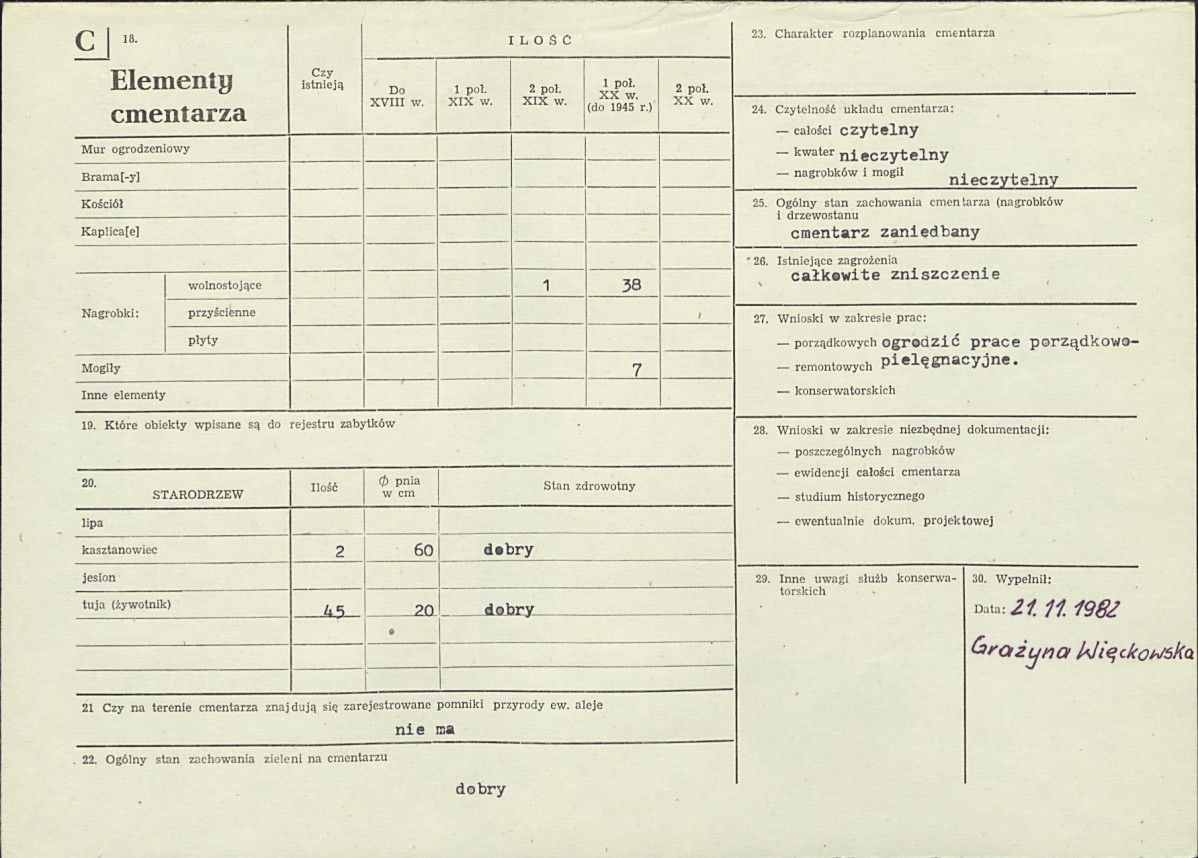 C 18.
Elementy cmentarza
Czy istnieją
ILOŚĆ
Do XVIII w.
1 poł. XIX w.
2 poł. XIX w.
1 poł. XX w. (do 1945 r.)
2 poł. XX w.
Mur ogrodzeniowy
Brama[-y]
Kościół
Kaplica[e]
Nagrobki:
wolnostojące 1 38
przyścienne
płyty
Mogiły 7
Inne elementy
19. Które obiekty wpisane są do rejestru zabytków
20. STARODRZEW
Ilość
Ø pnia w cm
Stan zdrowotny
lipa
kasztanowiec 2 60 dobry
jesion
tuja (żywotnik) 45 20 dobry
21 Czy na terenie cmentarza znajdują się zarejestrowane pomniki przyrody ew. aleje
nie ma
22. Ogólny stan zachowania zieleni na cmentarzu
dobry
23. Charakter rozplanowania cmentarza
24. Czytelność układu cmentarza:
— całości czytelny
— kwater nieczytelny
— nagrobków i mogił nieczytelny
25. Ogólny stan zachowania cmentarza (nagrobków
i drzewostanu
cmentarz zaniedbany
26. Istniejące zagrożenia
całkowite zniszczenie
27. Wnioski w zakresie prac:
— porządkowych ogrodzić prace porządkowo-
— remontowych pielęgnacyjne.
— konserwatorskich
28. Wnioski w zakresie niezbędnej dokumentacji:
— poszczególnych nagrobków
— ewidencji całości cmentarza
— studium historycznego
— ewentualnie dokum. projektowej
29. Inne uwagi służb konserwa-
torskich
30. Wypełnił:
Data: 21.11.1982
Grażyna Więckowska